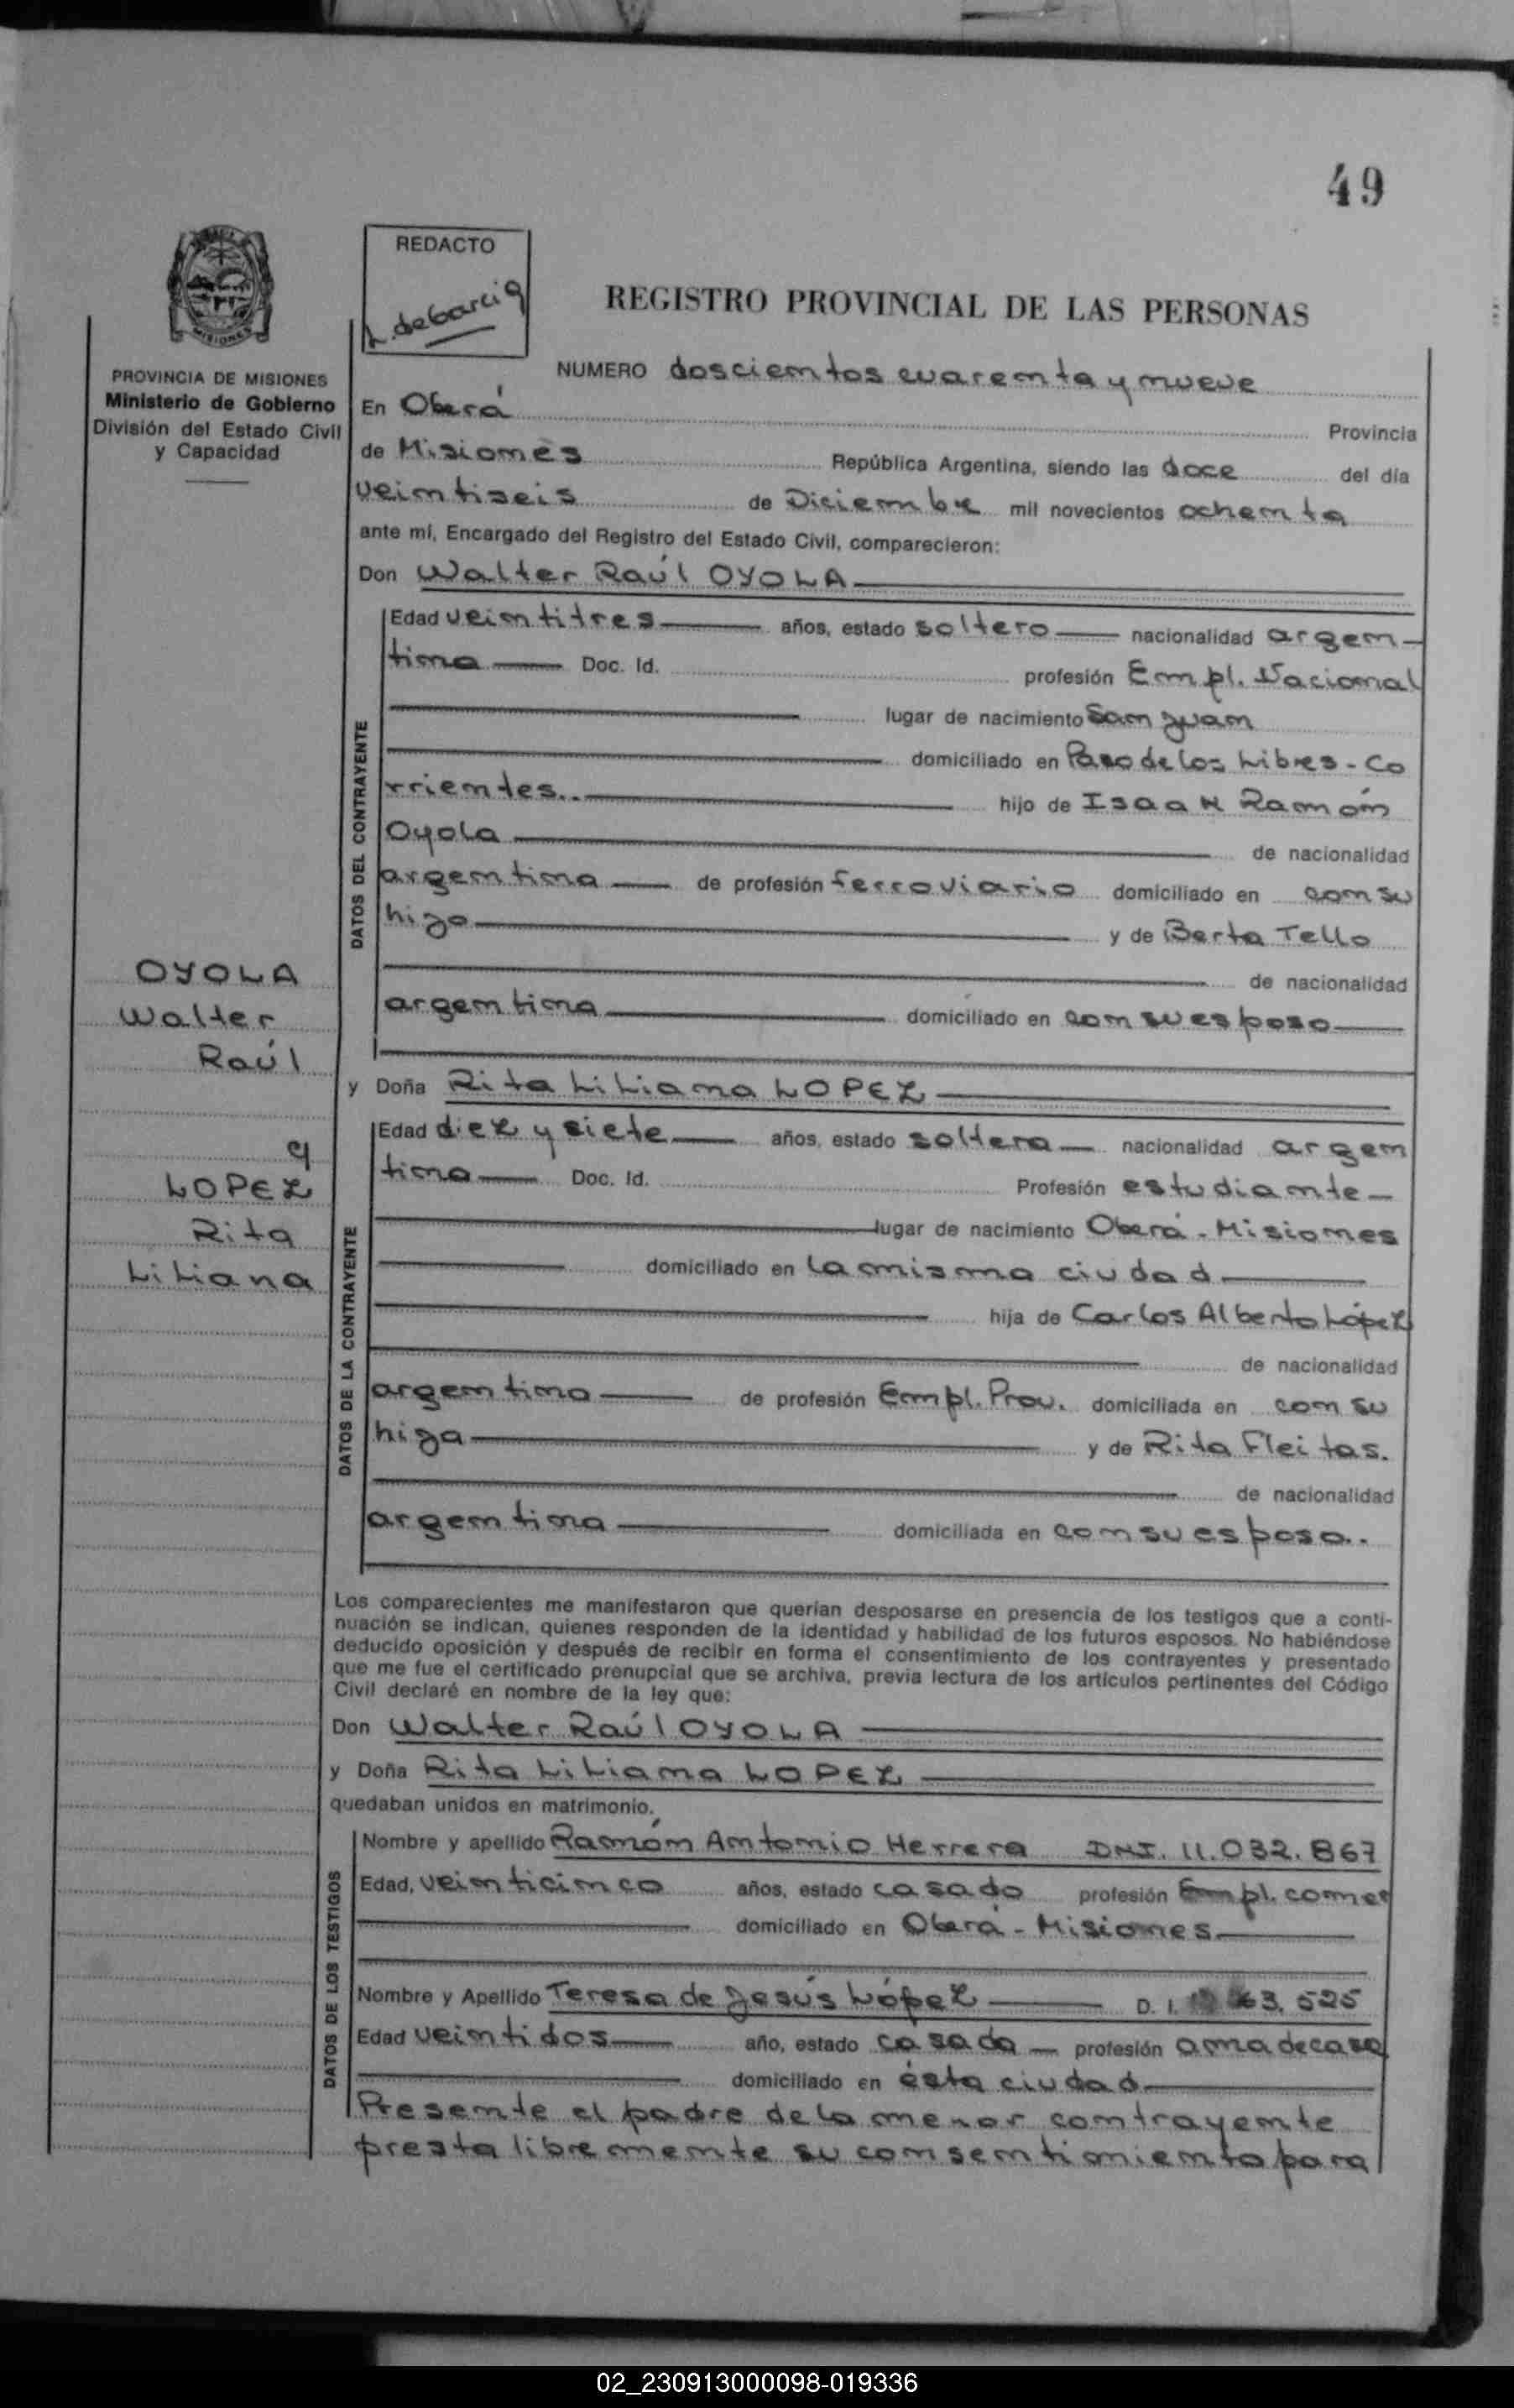 49
REDACTO
L. de Garcia
REGISTRO PROVINCIAL DE LAS PERSONAS
MISIONES
PROVINCIA DE MISIONES
Ministerio de Gobierno
División del Estado Civil
y Capacidad
NUMERO doscientos cuarenta y nueve
En Oberá Provincia
de Misiones República Argentina, siendo las doce del día
veintiseis de Diciembre mil novecientos ochenta
ante mí, Encargado del Registro del Estado Civil, comparecieron:
Don Walter Raúl OYOLA
DATOS DEL CONTRAYENTE
Edad veintitres años, estado soltero nacionalidad argen-
tina Doc. Id. profesión Empl. Nacional
lugar de nacimiento San Juan
domiciliado en Paso de los Libres - Co
rrientes.. hijo de Isaak Ramón
Oyola de nacionalidad
argentina de profesión ferroviario domiciliado en con su
hijo y de Berta Tello
de nacionalidad
argentina domiciliado en con su esposo
OYOLA
Walter
Raúl
y
LOPEZ
Rita
Liliana
y Doña Rita Liliana LOPEZ
DATOS DE LA CONTRAYENTE
Edad diez y siete años, estado soltera nacionalidad argen
tina Doc. Id. Profesión estudiante
lugar de nacimiento Oberá - Misiones
domiciliado en la misma ciudad
hija de Carlos Alberto López
de nacionalidad
argentina de profesión Empl. Prov. domiciliada en con su
hija y de Rita Fleitas.
de nacionalidad
argentina domiciliada en con su esposo..
Los comparecientes me manifestaron que querían desposarse en presencia de los testigos que a conti-
nuación se indican, quienes responden de la identidad y habilidad de los futuros esposos. No habiéndose
deducido oposición y después de recibir en forma el consentimiento de los contrayentes y presentado
que me fue el certificado prenupcial que se archiva, previa lectura de los artículos pertinentes del Código
Civil declaré en nombre de la ley que:
Don Walter Raúl OYOLA
y Doña Rita Liliana LOPEZ
quedaban unidos en matrimonio.
DATOS DE LOS TESTIGOS
Nombre y apellido Ramón Antonio Herrera DNI. 11.032.867
Edad, veinticinco años, estado casado profesión Empl. comer
domiciliado en Oberá - Misiones
Nombre y Apellido Teresa de Jesús López D. I. 63.525
Edad veintidos año, estado casada profesión ama de casa
domiciliado en ésta ciudad
Presente el padre de la menor contrayente
presta libremente su consentimiento para
02_230913000098-019336